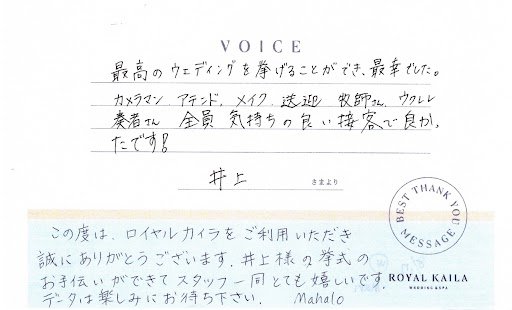 VOICE
最高のウェディングを挙げることができ、最幸でした。
カメラマン アテンド、メイク 送迎 牧師さん ウクレレ
奏者さん 全員 気持ちの良い接客で良かっ
たです!
井上 さまより
BEST THANK YOU MESSAGE
この度は、ロイヤルカイラをご利用いただき
誠にありがとうございます。井上様の挙式の
お手伝いができてスタッフ一同とても嬉しいです。
データは楽しみにお待ち下さい。 Mahalo
ROYAL KAILA
WEDDING & SPA